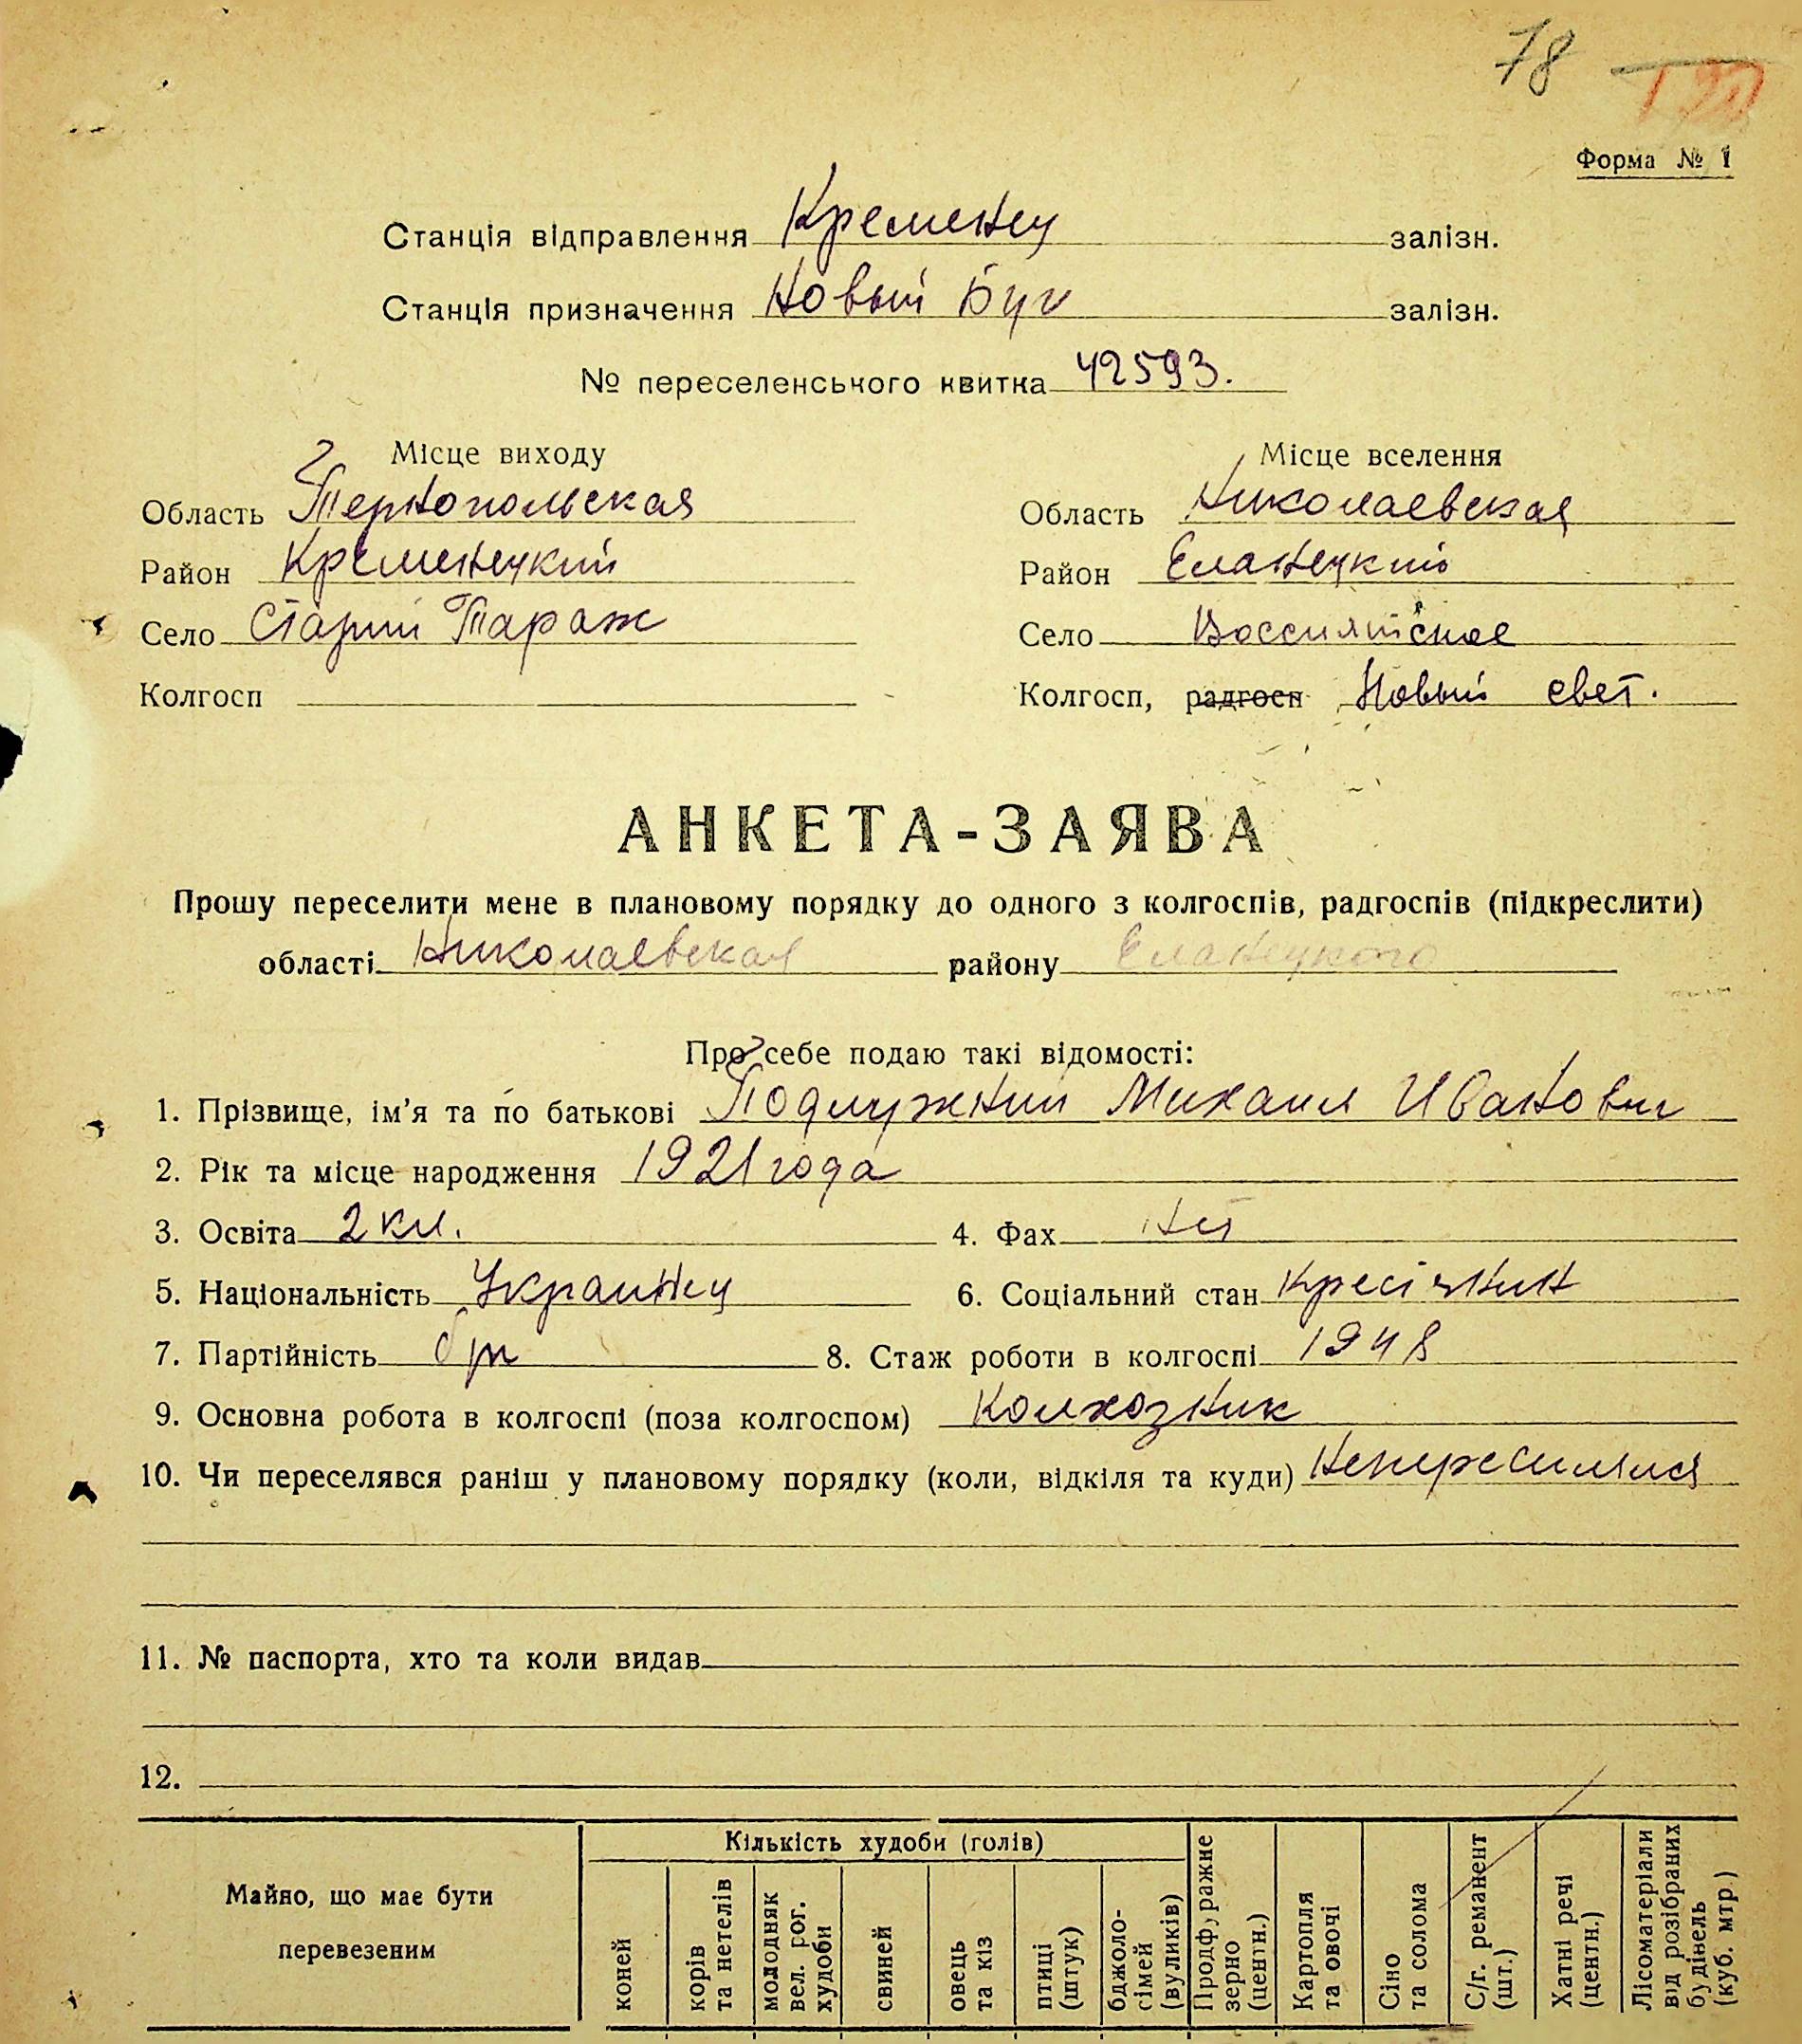 78
Форма № 1
Станція відправлення Кременец залізн.
Станція призначення Новый Буг залізн.
№ переселенського квитка 42593.
Місце виходу Місце вселення
Область Тернопольская Область Николаевская
Район Кременецкий Район Еланецкий
Село Старий Тараж Село Воссиятское
Колгосп Колгосп, радгосп Новый свет.
АНКЕТА-ЗАЯВА
Прошу переселити мене в плановому порядку до одного з колгоспів, радгоспів (підкреслити)
області Николаевская району Еланецкого
Про себе подаю такі відомості:
1. Прізвище, ім'я та по батькові Подлужний Михаил Иванович
2. Рік та місце народження 1921 года
3. Освіта 2 кл. 4. Фах нет
5. Національність Украинец 6. Соціальний стан
7. Партійність бп 8. Стаж роботи в колгоспі 1948
9. Основна робота в колгоспі (поза колгоспом) Колхозник
10. Чи переселявся раніш у плановому порядку (коли, відкіля та куди)
11. № паспорта, хто та коли видав
12.
Майно, що має бути перевезеним
Кількість худоби (голів)
коней
корів та нетелів
молодняк вел. рог. худоби
свиней
овець та кіз
птиці (штук)
бджоло-сімей (вуликів)
Продфуражне зерно (центн.)
Картопля та овочі
Сіно та солома
С/г. реманент (шт.)
Хатні речі (центн.)
Лісоматеріали від розібраних будівель (куб. мтр.)